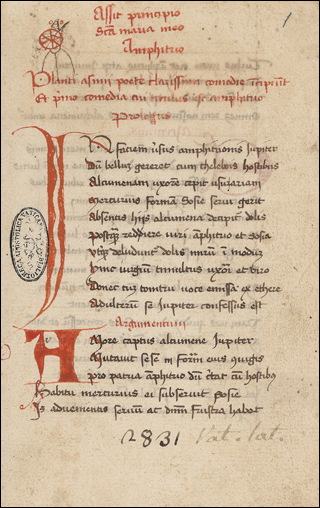 1
Assit principio
scta maria meo
Amphitrio
Plauti asinii poete clarissimi comedie īcipiūt
Et p̄mo comedia cui titulus est āphitrio
Prologus
In faciem v̄sus amphitrionis Jupiter
Dū bellū gereret cum thelebois hostibus
Alcumenam uxorē cepit usurariam
Mercurius formā Sosie serui gerit
Absentis hijs alcumena decipit̄ dolis
Postq̄ rediere viri āphitrio et Sosia
Vtq̄ deludunt̄ dolis mirū ī modū
Hinc iurgiū tumultus uxori et viro
Donec cū tonitru voce emissa ex ethere
Adulterū se Jupiter confessus est
Argumentum
Amore captus alcumene Jupiter
Mutauit sese in formā eius
Pro patria āphitrio dū c̄tat cū hostibus
Habitu mercurius ei subseruit Sosie
Is aduenientis seruū ac dn̄m frustra habet
2831 Vat. lat.